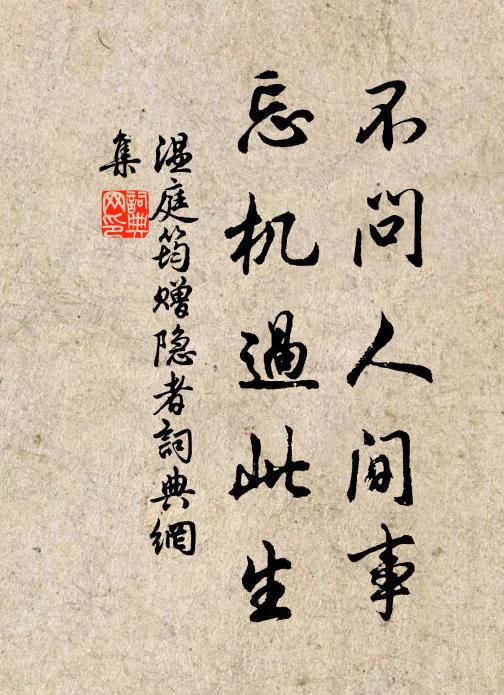 不问人间事
忘机過此生
温庭筠赠隐者詞典網
集
詞典
网印